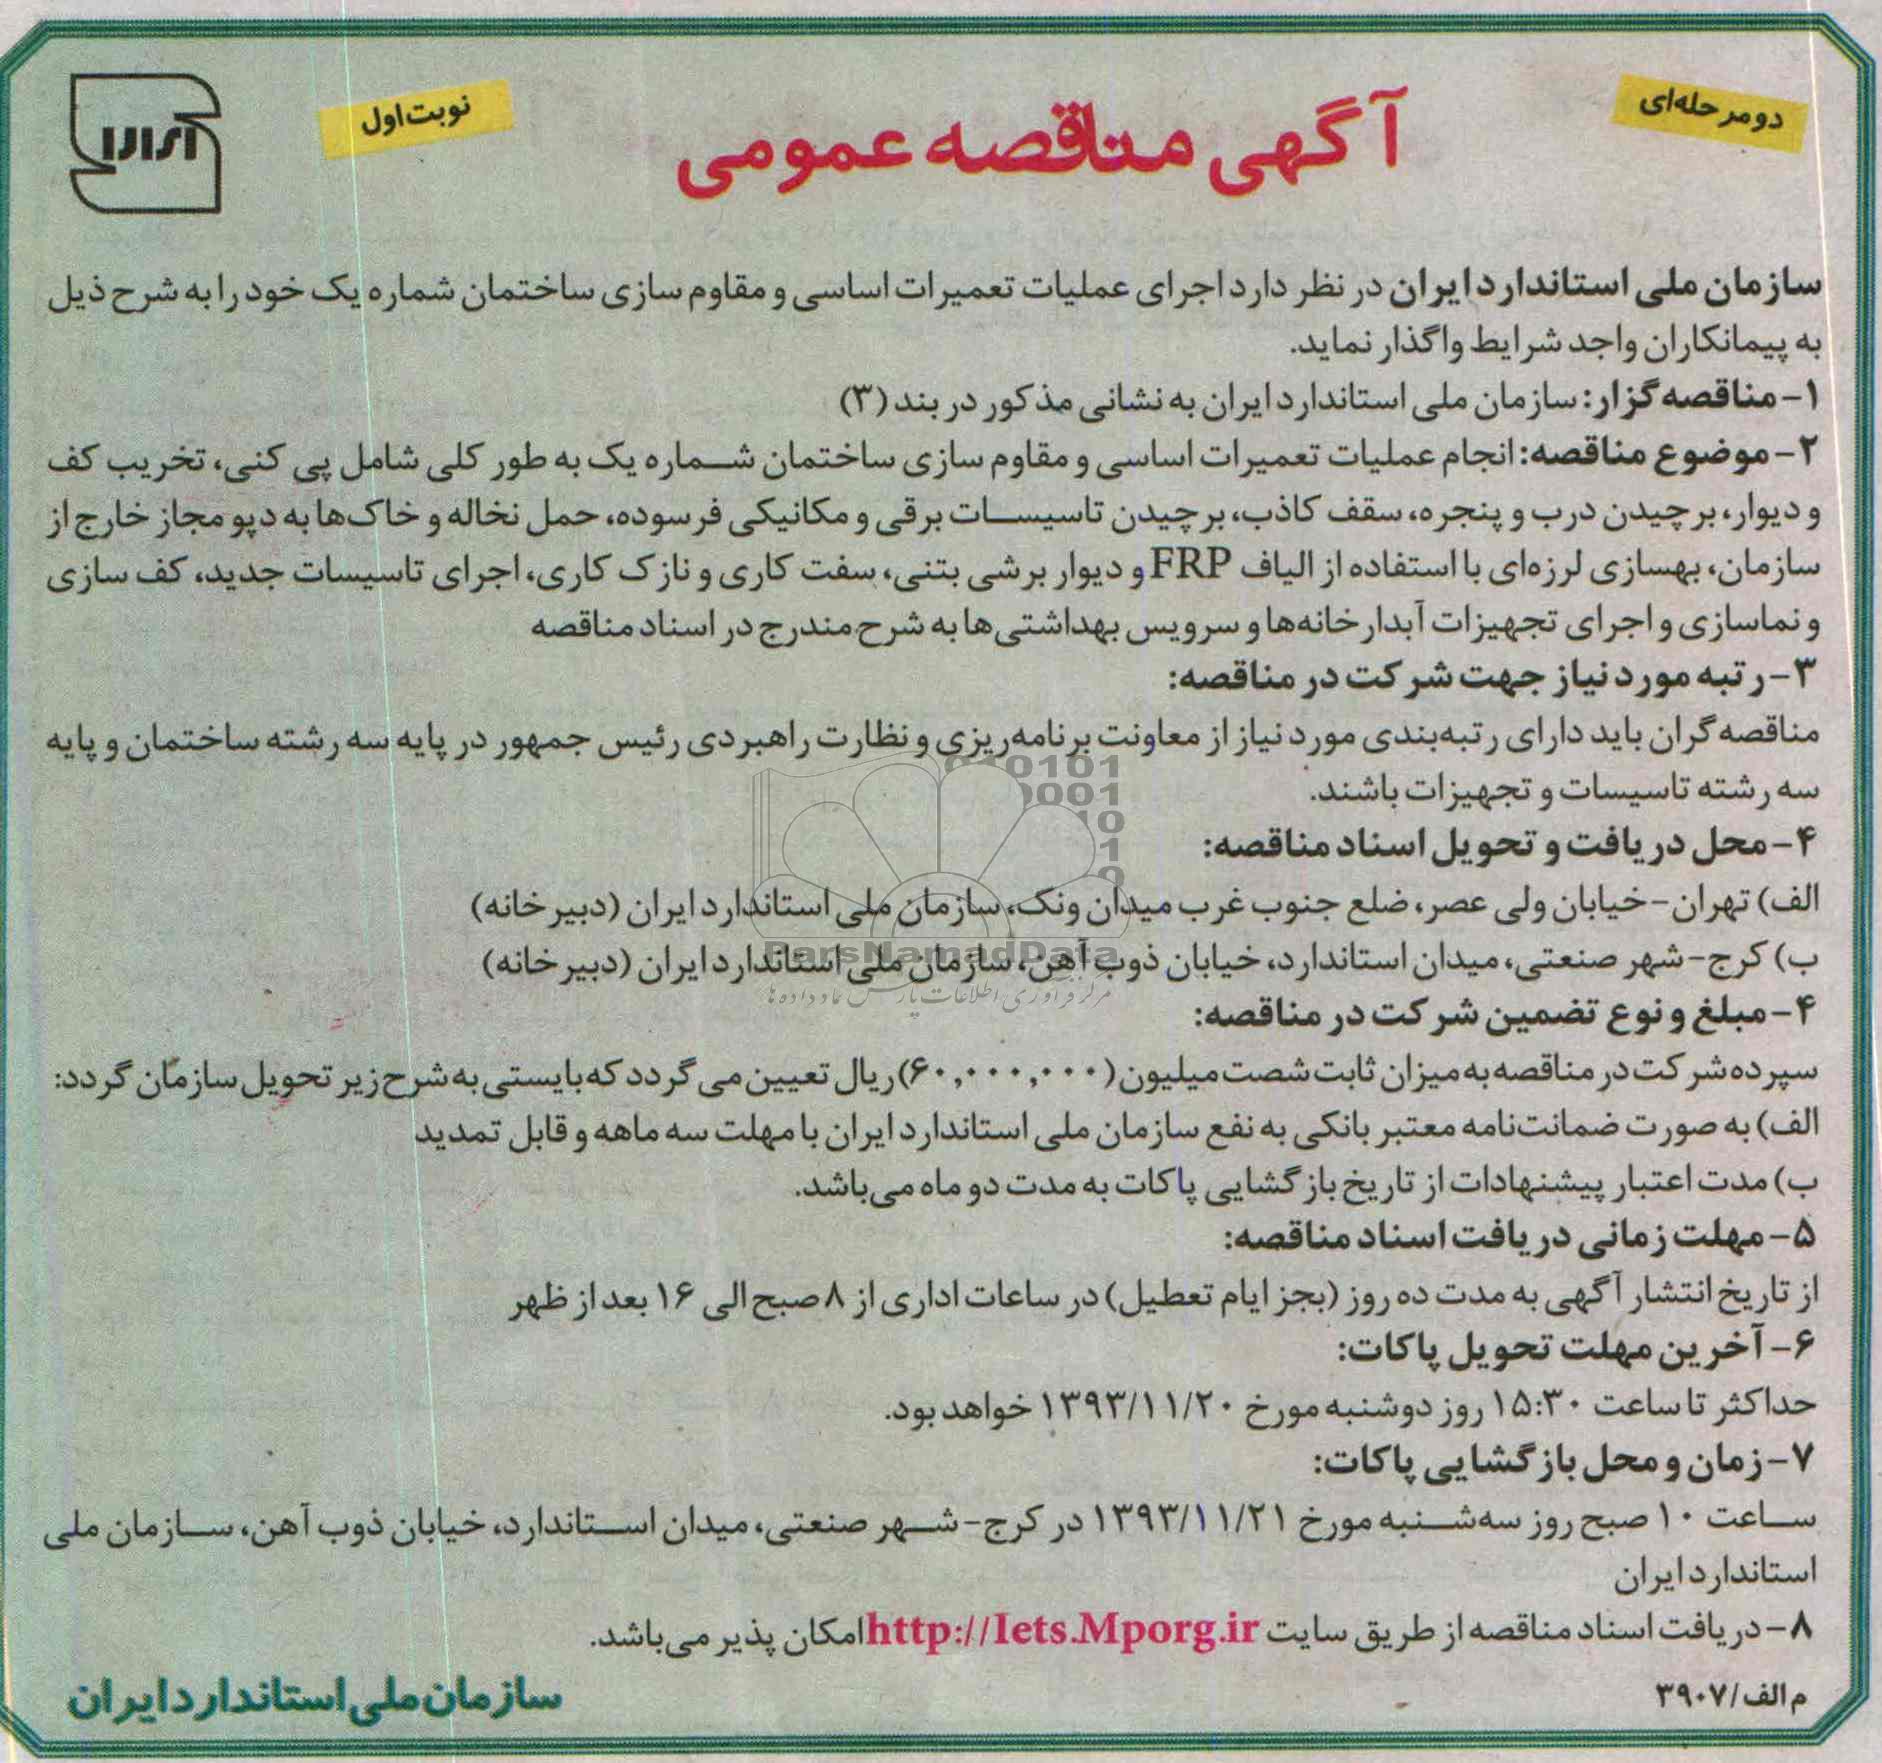 دومرحله‌ای
آگهی مناقصه عمومی
نوبت اول
سازمان ملی استاندارد ایران در نظر دارد اجرای عملیات تعمیرات اساسی و مقاوم سازی ساختمان شماره یک خود را به شرح ذیل
به پیمانکاران واجد شرایط واگذار نماید.
۱- مناقصه گزار: سازمان ملی استاندارد ایران به نشانی مذکور در بند (۳)
۲- موضوع مناقصه: انجام عملیات تعمیرات اساسی و مقاوم سازی ساختمان شماره یک به طور کلی شامل پی کنی، تخریب کف
و دیوار، برچیدن درب و پنجره، سقف کاذب، برچیدن تاسیسات برقی و مکانیکی فرسوده، حمل نخاله و خاک‌ها به دپو مجاز خارج از
سازمان، بهسازی لرزه‌ای با استفاده از الیاف FRP و دیوار برشی بتنی، سفت کاری و نازک کاری، اجرای تاسیسات جدید، کف سازی
و نماسازی و اجرای تجهیزات آبدارخانه‌ها و سرویس بهداشتی‌ها به شرح مندرج در اسناد مناقصه
۳- رتبه مورد نیاز جهت شرکت در مناقصه:
مناقصه گران باید دارای رتبه‌بندی مورد نیاز از معاونت برنامه‌ریزی و نظارت راهبردی رئیس جمهور در پایه سه رشته ساختمان و پایه
سه رشته تاسیسات و تجهیزات باشند.
۴- محل دریافت و تحویل اسناد مناقصه:
الف) تهران- خیابان ولی عصر، ضلع جنوب غرب میدان ونک، سازمان ملی استاندارد ایران (دبیرخانه)
ب) کرج- شهر صنعتی، میدان استاندارد، خیابان ذوب آهن، سازمان ملی استاندارد ایران (دبیرخانه)
ParsNamadData
مرکز فرآوری اطلاعات پارس نماد داده ها
۴- مبلغ و نوع تضمین شرکت در مناقصه:
سپرده شرکت در مناقصه به میزان ثابت شصت میلیون (۶۰,۰۰۰,۰۰۰) ریال تعیین می گردد که بایستی به شرح زیر تحویل سازمان گردد:
الف) به صورت ضمانت‌نامه معتبر بانکی به نفع سازمان ملی استاندارد ایران با مهلت سه ماهه و قابل تمدید
ب) مدت اعتبار پیشنهادات از تاریخ بازگشایی پاکات به مدت دو ماه می‌باشد.
۵- مهلت زمانی دریافت اسناد مناقصه:
از تاریخ انتشار آگهی به مدت ده روز (بجز ایام تعطیل) در ساعات اداری از ۸ صبح الی ۱۶ بعد از ظهر
۶- آخرین مهلت تحویل پاکات:
حداکثر تا ساعت ۱۵:۳۰ روز دوشنبه مورخ ۱۳۹۳/۱۱/۲۰ خواهد بود.
۷- زمان و محل بازگشایی پاکات:
ساعت ۱۰ صبح روز سه‌شنبه مورخ ۱۳۹۳/۱۱/۲۱ در کرج- شهر صنعتی، میدان استاندارد، خیابان ذوب آهن، سازمان ملی
استاندارد ایران
۸- دریافت اسناد مناقصه از طریق سایت http://Iets.Mporg.ir امکان پذیر می‌باشد.
م الف/۳۹۰۷
سازمان ملی استاندارد ایران